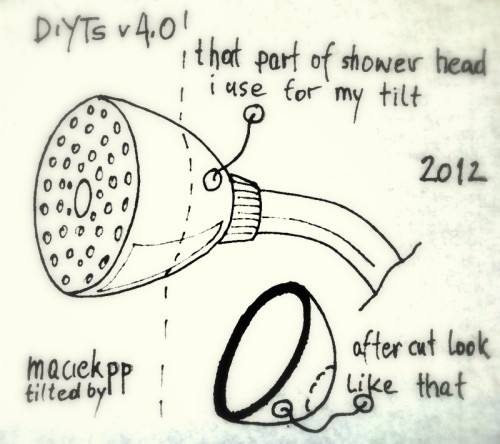 DiYTs v4.0
that part of shower head
i use for my tilt
2012
after cut look
Like that
maciekpp
tilted by